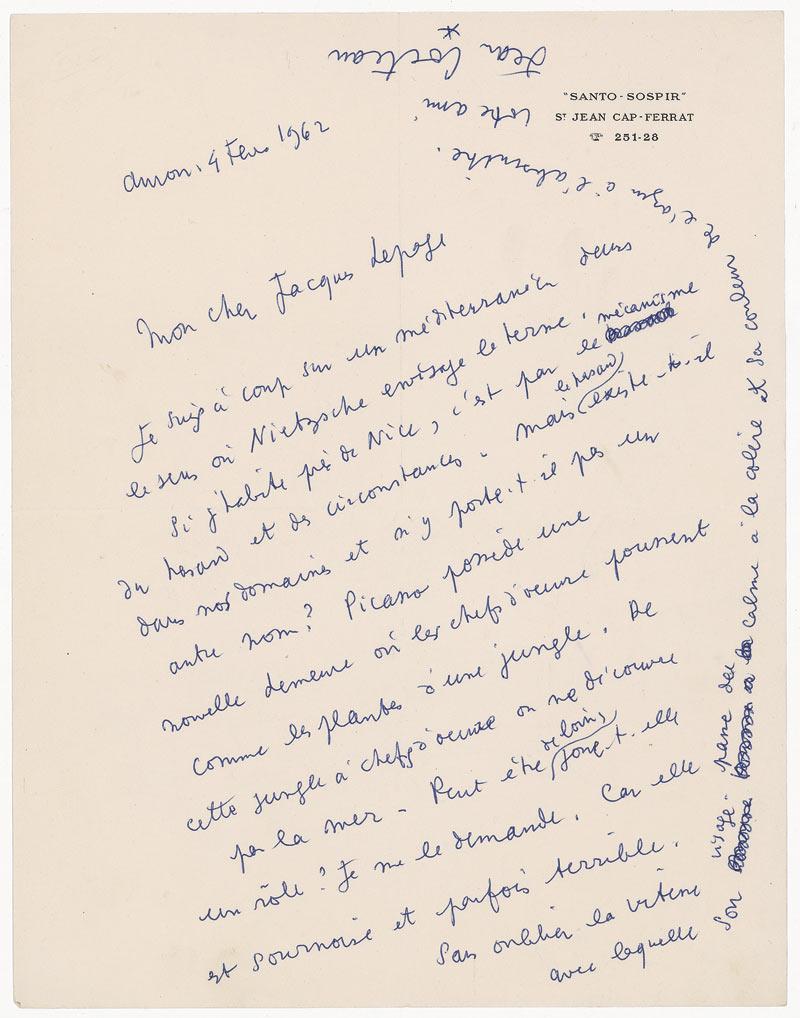 "SANTO-SOSPIR"
ST JEAN CAP-FERRAT
☏ 251-28
4 Fev 1962
Mon cher Jacques Lepage
Je suis à coup sur un méditerranéen dans
le sens où Nietzsche envisage le terme.
Si j'habite près de Nice, c'est par le mécanisme
du hasard et des circonstances. Mais (le hasard) existe-t-il
dans nos domaines et n'y porte-t-il pas un
autre nom? Picasso possède une
nouvelle demeure où les chefs d'oeuvre poussent
comme les plantes d'une jungle. De
cette jungle à chefs d'oeuvre on ne découvre
pas la mer. Peut être de loin joue-t-elle
un rôle? Je me le demande. Car elle
est sournoise et parfois terrible.
Sans oublier la vitesse
avec laquelle
son visage passe du calme à la colère et sa couleur
de l'azur à l'absinthe.
votre ami
Jean Cocteau
*